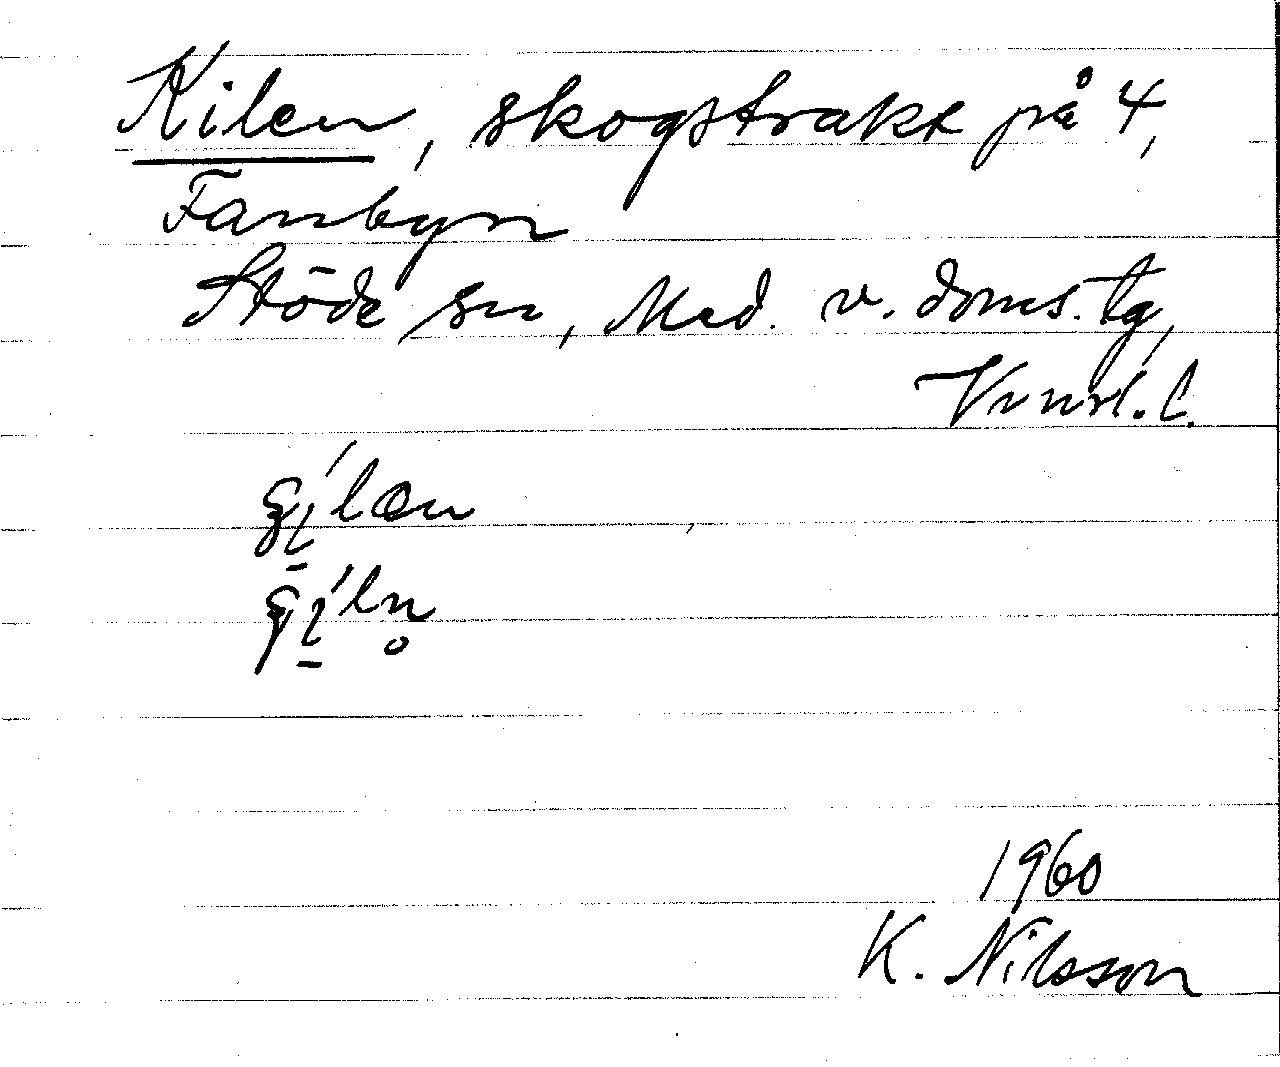 Kilen, skogstrakt på 4,
Fanbyn
Stöde sn, Med. v. doms. tg,
Vnrl. l.
1960
K. Nilsson